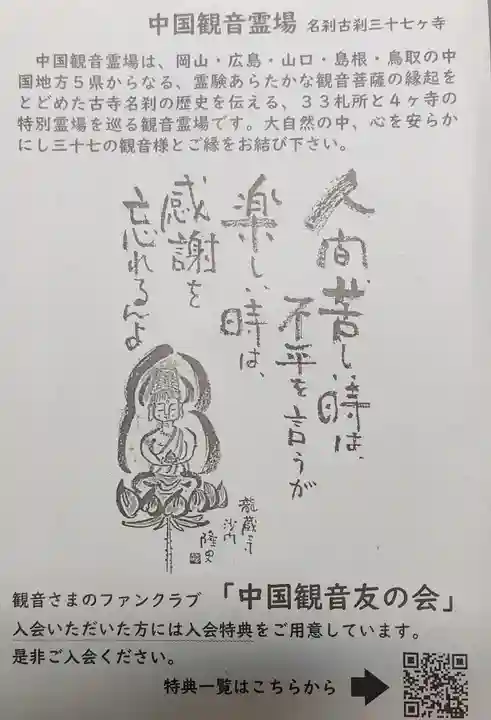 中国観音霊場 名刹古刹三十七ヶ寺
中国観音霊場は、岡山・広島・山口・島根・鳥取の中
国地方５県からなる、霊験あらたかな観音菩薩の縁起を
とどめた古寺名刹の歴史を伝える、３３札所と４ヶ寺の
特別霊場を巡る観音霊場です。大自然の中、心を安らか
にし三十七の観音様とご縁をお結び下さい。
人間苦しい時は、
不平を言うが
楽しい時は、
感謝を
忘れるんよ
龍蔵寺
沙門
隆史
観音さまのファンクラブ 「中国観音友の会」
入会いただいた方には入会特典をご用意しています。
是非ご入会ください。
特典一覧はこちらから